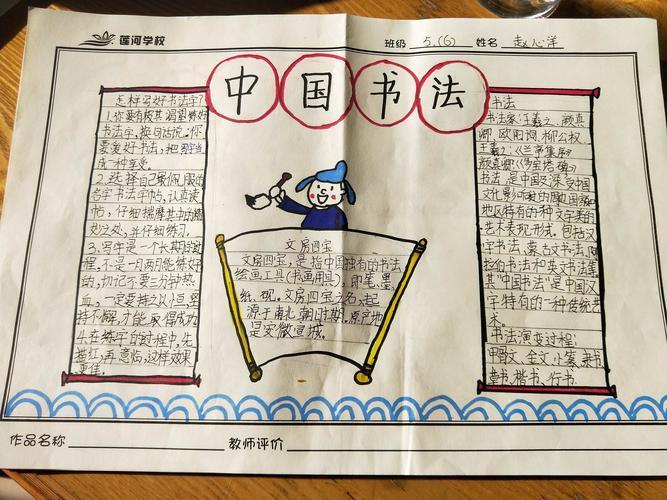 莲河学校
班级 5.(6) 姓名 赵心洋
中国书法
怎样写好书法字?
1.你要有极其渴望势好
书法字,换句话说:你
要爱好书法,把写字当
成一种享受。
2.选择自己最佩服的
名字书法字帖,认真读
帖,仔细揣摩其中的精
妙之处,并仔细练习。
3.写字是一个长期过
程,不是一月两月能练好
的,切记不要三分钟热
血,一定要持之以恒坚
持不懈,才能取得成功
4.在练字的时程中,先
描红,再意临,这样效果
更佳。
文房四宝
文房四宝,是指中国独有的书法
绘画工具(书画用具),即笔、墨、
纸、砚。文房四宝之名,起
源于南北朝时期。原产地
是安徽宣城。
书法
书法家:王羲之、颜真
卿、欧阳询、柳公权
王羲之:《兰亭集序》
颜真卿:《多宝塔碑》
书法是中国及深受中国
文化影响的周国家和
地区特有的种文字美的
艺术表现形式。包括汉
字书法、蒙古文书法、阿
拉伯书法和英文书法等
其"中国书法"是中国汉
字特有的一种传统艺
术。
书法演变过程:
甲骨文、金文、小篆、隶书
草书、楷书、行书
作品名称
教师评价